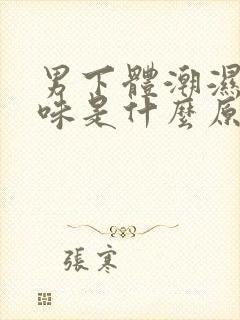 男下體潮濕
味是什麼原
張寒